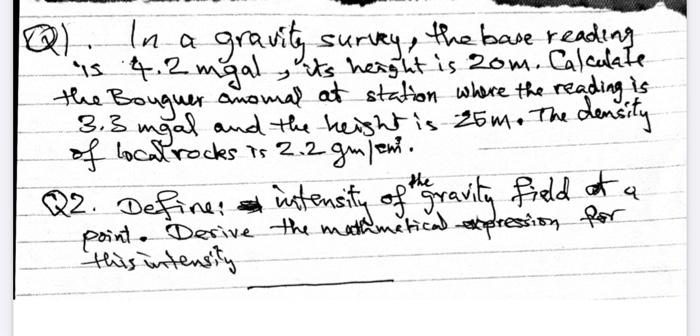 Q1). In a gravity survey, the base reading
is 4.2 mgal, its height is 20m. Calculate
the Bouguer anomal at station where the reading is
3.3 mgal and the height is 25m. The density
of local rocks is 2.2 gm/cm³.
Q2. Define: intensity of the gravity field at a
point. Derive the mathmetical expression for
this intensity